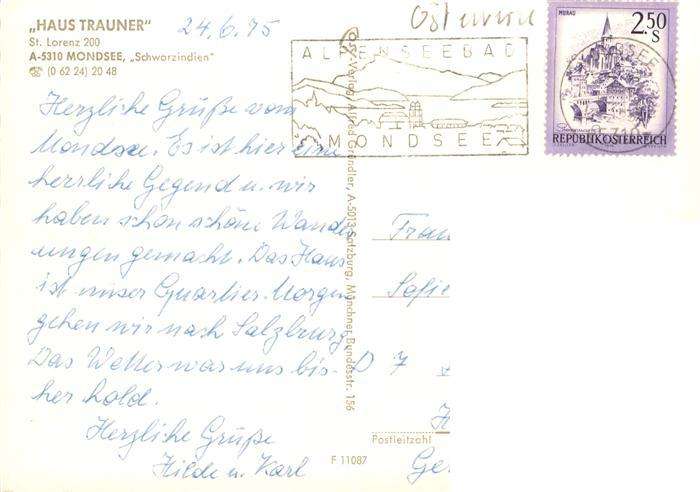 „HAUS TRAUNER"
St. Lorenz 200
A-5310 MONDSEE, „Schwarzindien"
☎ (0 62 24) 20 48
24.6.75
Herzliche Grüße vom
Mondsee. Es ist hier eine
herrliche Gegend u. wir
haben schon schöne Wander
ungen gemacht. Das Haus
ist unser Quartier. Morgen
gehen wir nach Salzburg.
Das Wetter war uns bis-
her hold.
Herzliche Grüße
Hilde u. Karl
ALPENSEEBAD
MONDSEE
MURAU
2.50
S
REPUBLIK ÖSTERREICH
Verlag Alfred Gründler, A-5013 Salzburg, Münchner Bundesstr. 156
Frau
Sofie
D 7
Postleitzahl
F 11087